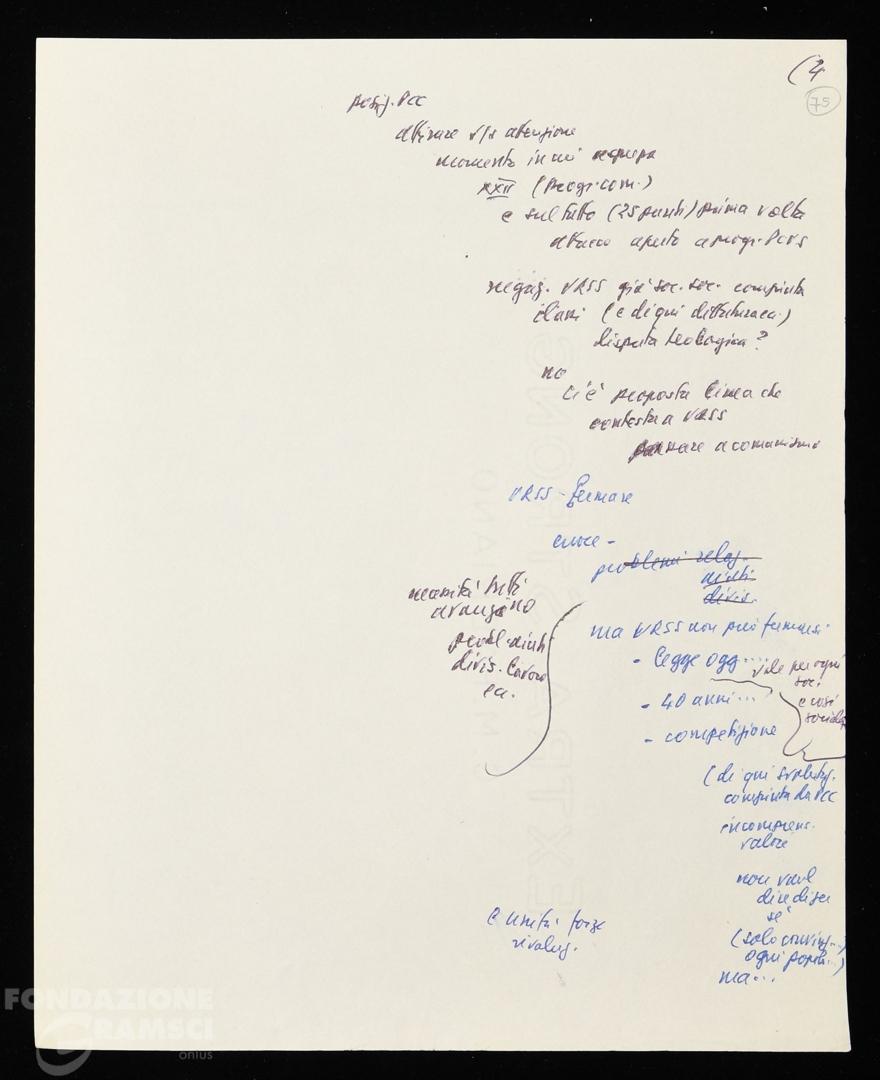 (4
75
posiz. PCC
attirare v/s attenzione
momento in cui
XXII (progr. com.)
e sul fatto (25 punti) prima volta
attacco aperto a progr. PCUS
negaz. URSS già soc. soc. compiuta
classi (e di qui dittatura ecc.)
disputa teologica?
no
c'è proposta linea che
contesta a URSS
a comunismo
URSS - fermare
cuore -
problemi
aiuti
divis.
necessità tutti
avanzino
probl. aiuti
divis. lavoro
ecc.
ma URSS non può fermarsi
- legge ogg.... vale per ogni
soc.
e così
- 40 anni...
- competizione
(di qui svalutaz.
compiuta da PCC
incomprens.
valore
non vuol
dire
sé
(solo
ogni popolo...)
ma...
e unità forze
rivoluz.
FONDAZIONE
GRAMSCI
onlus